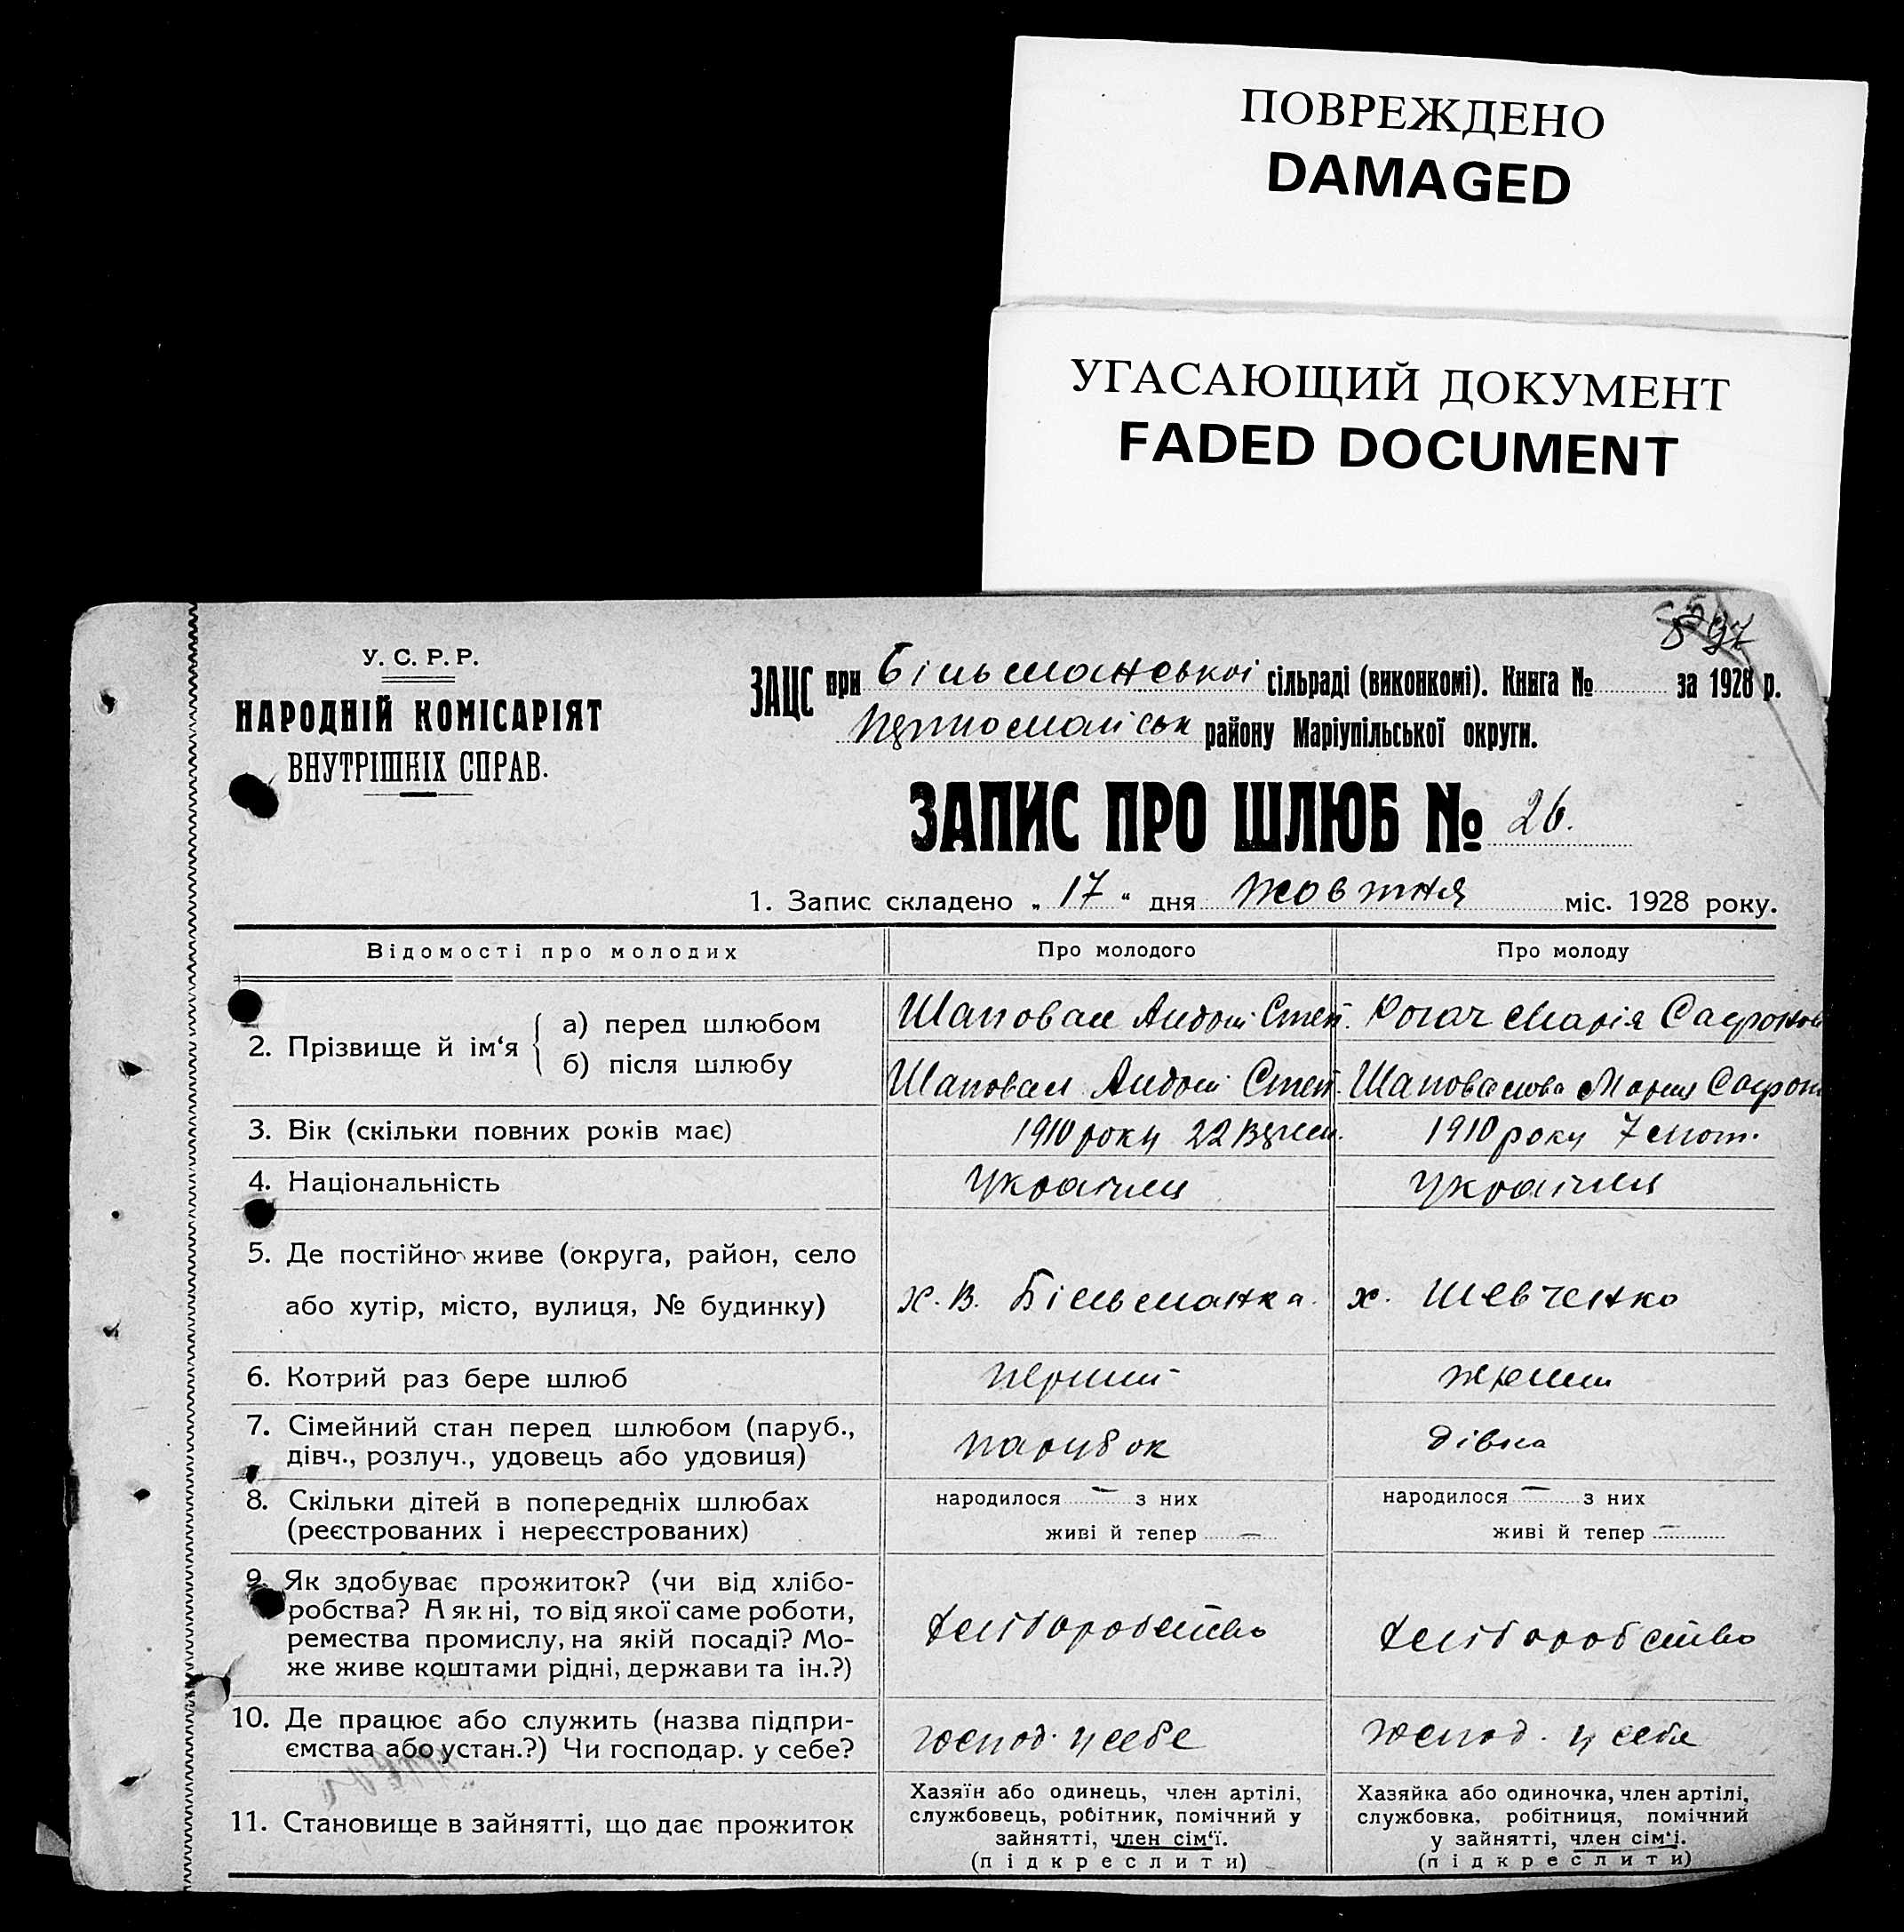 ПОВРЕЖДЕНО
DAMAGED
УГАСАЮЩИЙ ДОКУМЕНТ
FADED DOCUMENT
У. С. Р. Р.
НАРОДНІЙ КОМІСАРІЯТ
ВНУТРІШНІХ СПРАВ.
ЗАЦС при Більманської сільраді (виконкомі). Книга № за 1928 р.
Першомайськ району Маріупільської округи.
ЗАПИС ПРО ШЛЮБ № 26.
1. Запис складено „ 17 “ дня жовтня міс. 1928 року.
Відомості про молодих
Про молодого
Про молоду
2. Прізвище й ім‘я
а) перед шлюбом
Шаповал Андрій Степ.
Рогач Марія Сафронов
б) після шлюбу
Шаповал Андрій Степ.
Шаповалова Мария Сафрон
3. Вік (скільки повних років має)
1910 року 22
1910 року 7 лют.
4. Національність
Українец
Українец
5. Де постійно живе (округа, район, село
або хутір, місто, вулиця, № будинку)
х. В. Більманка.
х. Шевченко
6. Котрий раз бере шлюб
перший
перший
7. Сімейний стан перед шлюбом (паруб.,
дівч., розлуч., удовець або удовиця)
парубок
дівка
8. Скільки дітей в попередніх шлюбах
(реєстрованих і нереєстрованих)
народилося — з них
живі й тепер —
народилося — з них
живі й тепер —
9. Як здобуває прожиток? (чи від хлібо-
робства? А як ні, то від якої саме роботи,
ремества промислу, на якій посаді? Мо-
же живе коштами рідні, держави та ін.?)
хліборобство
хліборобство
10. Де працює або служить (назва підпри-
ємства або устан.?) Чи господар. у себе?
господ. у себе
господ. у себе
11. Становище в зайнятті, що дає прожиток
Хазяїн або одинець, член артілі,
службовець, робітник, помічний у
зайнятті, член сім‘ї.
(підкреслити)
Хазяйка або одиночка, член артілі,
службовка, робітниця, помічний
у зайнятті, член сім‘і.
(підкреслити)